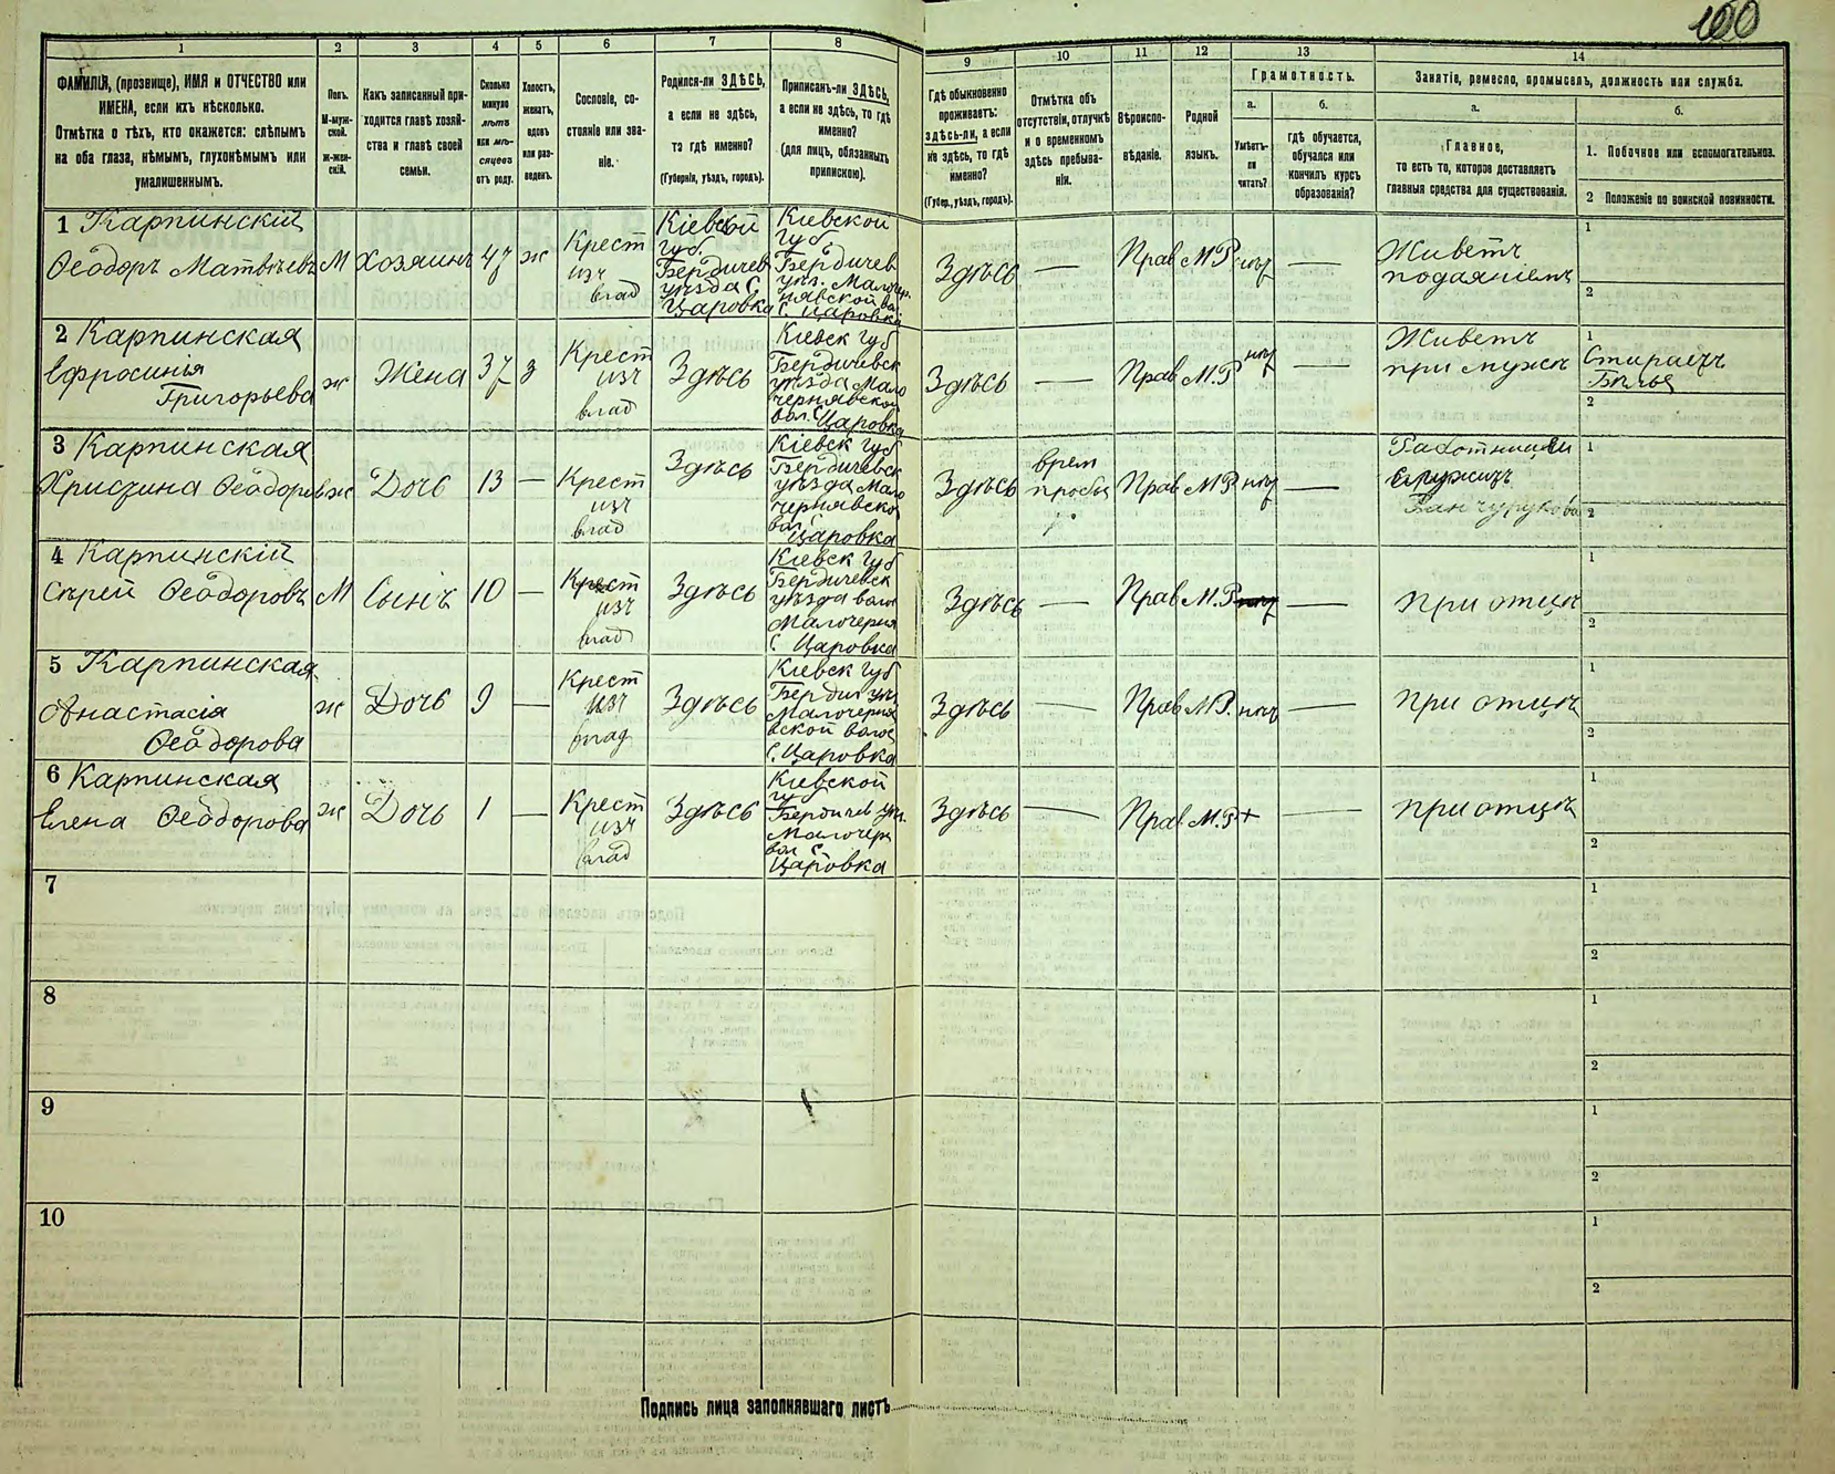 100
1
2
3
4
5
6
7
8
9
10
11
12
13
14
ФАМИЛІЯ, (прозвище), ИМЯ и ОТЧЕСТВО или
ИМЕНА, если ихъ нѣсколько.
Отмѣтка о тѣхъ, кто окажется: слѣпымъ
на оба глаза, нѣмымъ, глухонѣмымъ или
умалишеннымъ.
Полъ.
М-муж-
ской.
Ж-жен-
скій.
Какъ записанный при-
ходится главѣ хозяй-
ства и главѣ своей
семьи.
Сколько
минуло
лѣтъ
или мѣ-
сяцевъ
отъ роду.
Холостъ,
женатъ,
вдовъ
или раз-
веденъ.
Сословіе, со-
стояніе или зва-
ніе.
Родился-ли ЗДѢСЬ,
а если не здѣсь,
то гдѣ именно?
(Губернія, уѣздъ, городъ).
Приписанъ-ли ЗДѢСЬ,
а если не здѣсь, то гдѣ
именно?
(для лицъ, обязанныхъ
припискою).
Гдѣ обыкновенно
проживаетъ:
здѣсь-ли, а если
не здѣсь, то гдѣ
именно?
(Губер., уѣздъ, городъ).
Отмѣтка объ
отсутствіи, отлучкѣ
и о временномъ
здѣсь пребыва-
ніи.
Вѣроиспо-
вѣданіе.
Родной
языкъ.
Грамотность.
а.
Умѣетъ-
ли
читать?
б.
гдѣ обучается,
обучался или
кончилъ курсъ
образованія?
Занятіе, ремесло, промыселъ, должность или служба.
а.
Главное,
то есть то, которое доставляетъ
главныя средства для существованія.
б.
1. Побочное или вспомогательное.
2 Положеніе по воинской повинности.
1 Карпинскій
Ѳеодоръ Матвѣевъ
М
хозяинъ
47
ж
Крест
изъ
влад
Кіевской
губ.
Бердичев
уѣзда с.
Царовка
Кіевской
губ.
Бердичев
уѣз. Малочер.
нявской во
с. Царовка
Здѣсь
—
Прав
М.Р
нѣт
—
Живетъ
подаяніемъ
1
2
2 Карпинская
Ефросинія
Григорьева
ж
Жена
37
з
Крест
изъ
влад
Здѣсь
Кіевск губ
Бердичевск
уѣзда Мало
чернявской
вол. с Царовка
Здѣсь
—
Прав
М.Р
нѣт
—
Живетъ
при мужѣ
1
Стираетъ
Бѣлье
2
3 Карпинская
Христина Ѳеодорова
ж
Дочь
13
—
Крест
изъ
влад
Здѣсь
Кіевск губ
Бердичевск
уѣзда Мало
чернявско
вол. Царовка
Здѣсь
Прав
М.Р
нѣт
—
служитъ
1
2
4 Карпинскій
Ѳеодоровъ
М
Сынъ
10
—
Крест
изъ
влад
Здѣсь
Кіевск губ
Бердичевск
уѣзда воло
Малочерня
с. Царовка
Здѣсь
—
Прав
М.Р
нѣт
—
при отцѣ
1
2
5 Карпинская
Анастасія
Ѳеодорова
ж
Дочь
9
—
Крест
изъ
влад
Здѣсь
Кіевск губ
Бердич уѣз
Малочерня
вской воло
с. Царовка
Здѣсь
—
Прав
М.Р.
нѣт
—
при отцѣ
1
2
6 Карпинская
Елена Ѳеодорова
ж
Дочь
1
—
Крест
изъ
влад
Здѣсь
Кіевской
губ
Бердичев уѣз.
Малочер
вол с.
Царовка
Здѣсь
—
Прав
М.Р
+
—
при отцѣ
1
2
7
1
2
8
1
2
9
1
2
10
1
2
Подпись лица заполнявшаго листъ